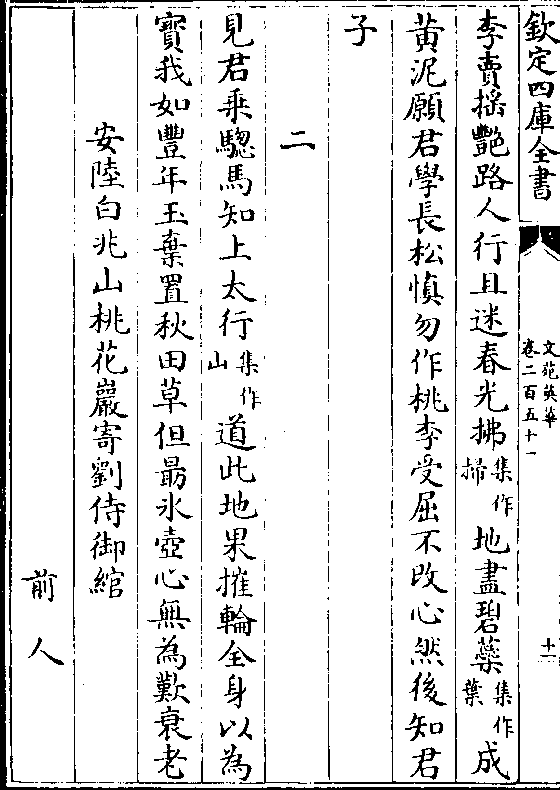 欽定四庫全書
文苑英華
卷二百五十一
十一
李賣揺艷路人行且迷春光拂集作掃地盡碧蘂集作葉成
黄泥願君學長松慎勿作桃李受屈不改心然後知君
子
二
見君乗驄馬知上太行集作山道此地果摧輪全身以為
寳我如豐年玉棄置秋田草但朂氷壺心無為歎衰老
安陸白兆山桃花巖寄劉侍御綰
前人